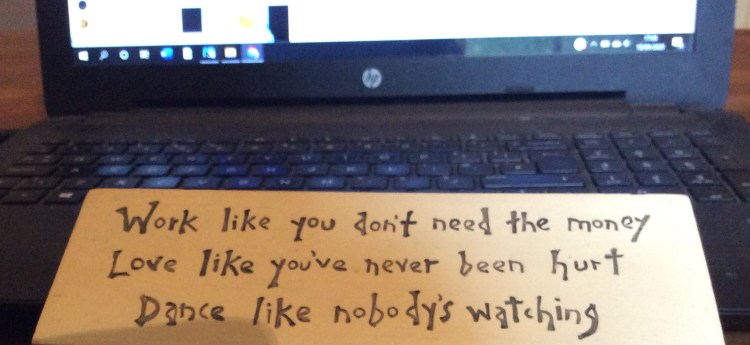 hp
Work like you don't need the money
Love like you've never been hurt
Dance like nobody's watching